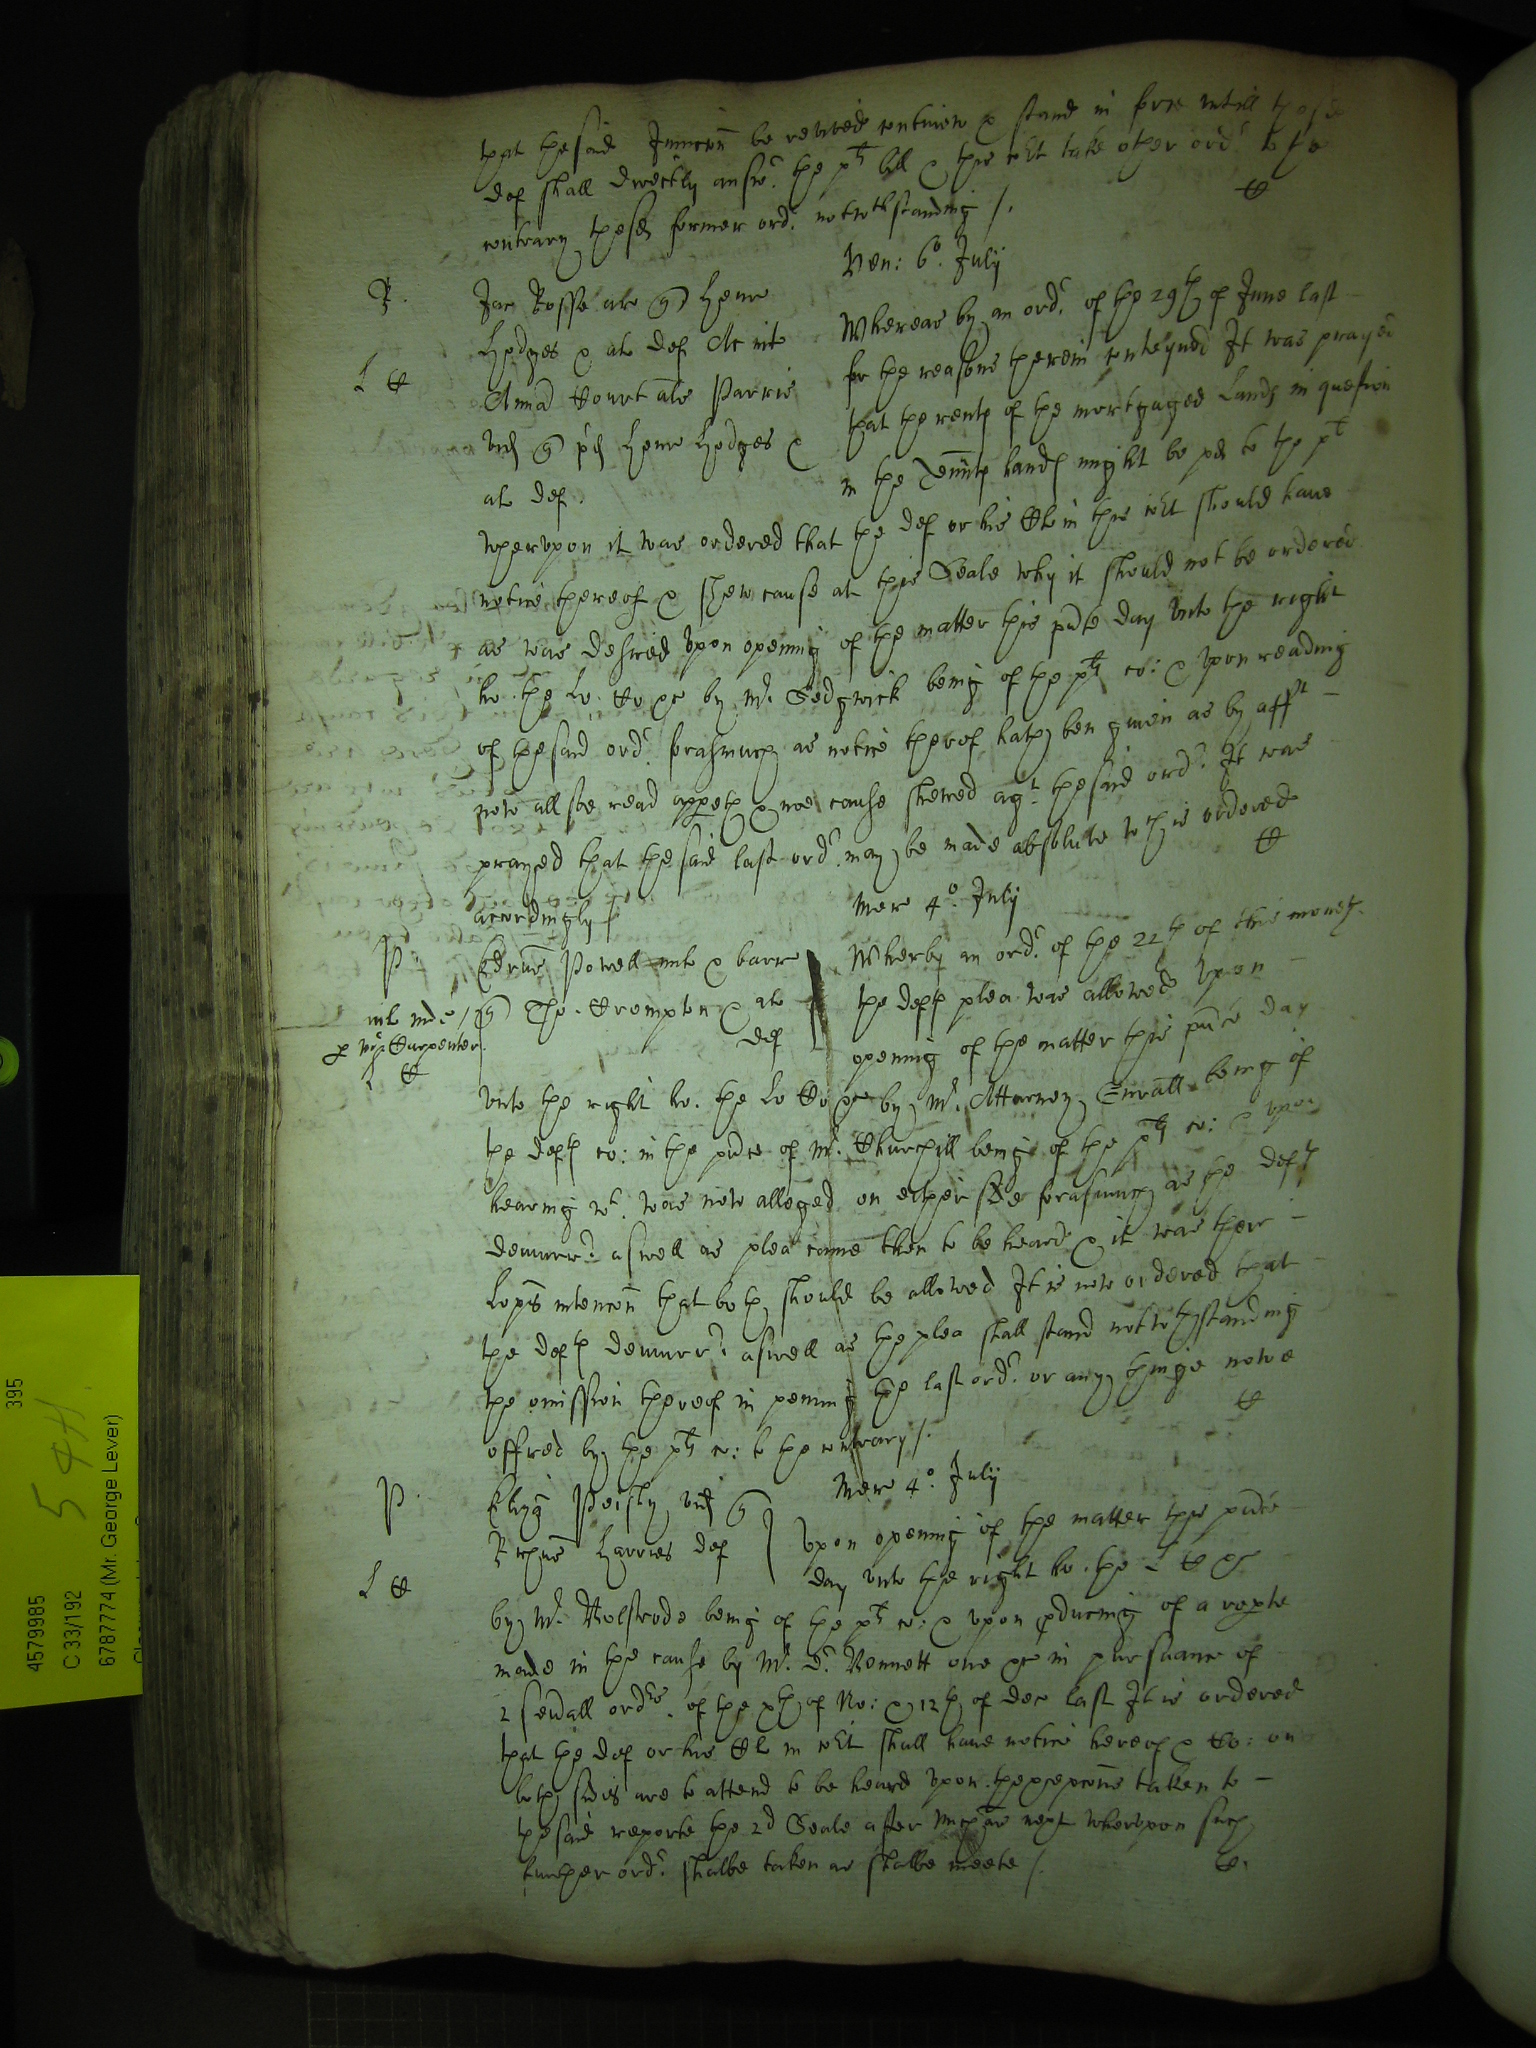 that the said Iniuncon be revived continew & stand in force untill the said
def shall directly answ.r the pl.ts bill & this co.rt take other ord.r to the
contrary the sd former ord.r notwthstanding /.
Ven: 6.o July
R.
L C
Jac Rosse ar q Henr
Hodges & al def Ac int
Anna Court als Parris
vid q pd Henr Hodges &
al def.
Whereas by an ord.r of the 29th of June last
for the reasons therein conteyned It was prayed
that the rents of the mortgaged Lands in question
in the Tennts hands might be pd to the pt
wherupon it was ordered that the def or his Cl in this co.rt should have
notice thereof & shew cause at this Seale why it should not be ordered
as was desired Upon opening of the matter this pnte day unto the right
ho. the Lo. Co &c by Mr Sedgwick being of the pts co: & upon reading
of the said ord.r forasmuch as notice therof hath ben given as by afft
now allsoe read appeth & noe cause shewed agt the said ord.r It was
prayed that the said last ord.r may be made absolute wch is ordered
accordingly /
Merc 4.o July
P
Edrus Powell mil & barr
q Tho. Crompton & al
def
nil mde /
p Mr Carpenter
C
Wherby an ord.r of the 22th of this moneth
the defts plea was allowed Upon
opening of the matter this pnte day
unto the right ho. the Lo Co &c by Mr. Attorney Gnrall being of
the defts co: in the pnce of Mr. Churchill being of the pts co: & upon
hearing wt. was now alleged on either side forasmuch as the defts
demurr.r aswell as plea came then to be heard & it was ther
Lopps intencon that both should be allowed It is now ordered that
the defts demurr.r aswell as the plea shall stand notwthstanding
the omission thereof in penning the last ord.r or any thinge nowe
offred by the pts co: to the contrary /.
Merc 4.o July
P.
L C
Eliza Peisly vid q
Richus Harries def
Upon opening of the matter this pnte
day unto the right ho. the L C &c
by Mr. Bolstrode being of the pts co: & upon pducing of a reporte
made in the cause by Mr. Dr. Bennett one &c in pursuance of
2 sevrall ordrs. of the xth of No: & 12th of Dec last It is ordered
that the def or his Cl in co.rt shall have notice hereof & Co: on
both sides are to attend to be heard upon the excepcons taken to
the said reporte the 2d Seale after Michas next wherupon such
further ord.r shalbe taken as shalbe meete /.
395
54H
4579985
C 33/192
6787774 (Mr. George Lever)